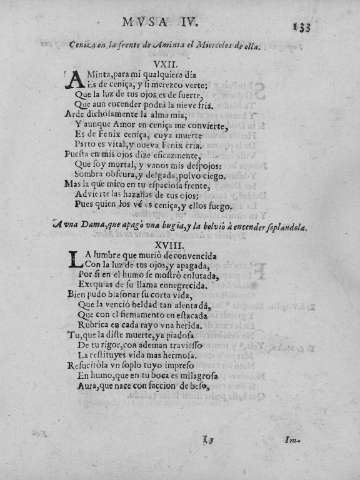 MVSA IV.
133
Ceniza en la frente de Aminta el Miercoles de ella.
VXII.
AMinta, para mi qualquiera dia
Es de ceniça, y si merezco verte;
Que la luz de tus ojos es de suerte,
Que aun encender podrà la nieve fria.
Arde dichosamente la alma mia,
Y aunque Amor en ceniça me convierte,
Es de Fenix ceniça, cuya muerte
Parto es vital, y nueva Fenix cria.
Puesta en mis ojos dize eficazmente,
Que soy mortal, y vanos mis despojos:
Sombra obscura, y delgada, polvo ciego.
Mas la que miro en tu espaciosa frente,
Advierte las hazañas de tus ojos;
Pues quien los vè es ceniça, y ellos fuego.
A vna Dama, que apagò vna bugia, y la bolviò à encender soplandola.
XVIII.
LA lumbre que muriò de convencida
Con la luz de tus ojos, y apagada,
Por si en el humo se mostrò enlutada,
Exequias de su llama ennegrecida.
Bien pudo blasonar su corta vida,
Que la venciò beldad tan alentada,
Que con el firmamento en estacada
Rubrica en cada rayo vna herida.
Tu, que la diste muerte, ya piadosa
De tu rigor, con ademan travieso
La restituyes vida mas hermosa.
Resucitòla vn soplo tuyo impreso
En humo, que en tu boca es milagrosa
Aura, que nace con faccion de beso.
Im-